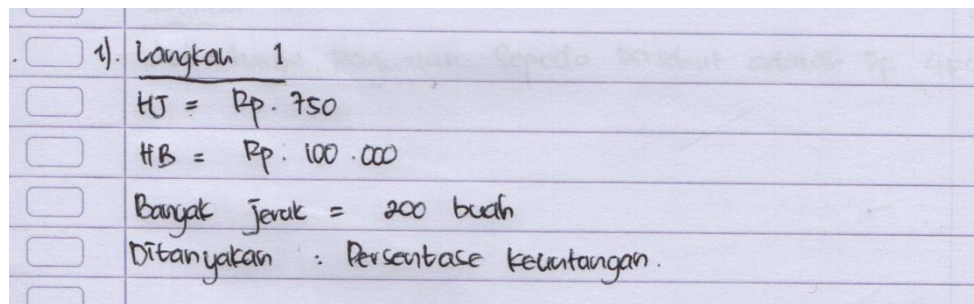 1). Langkah 1
HJ = Rp. 750
HB = Rp. 100.000
Banyak jeruk = 200 buah
Ditanyakan : Persentase keuntangan.